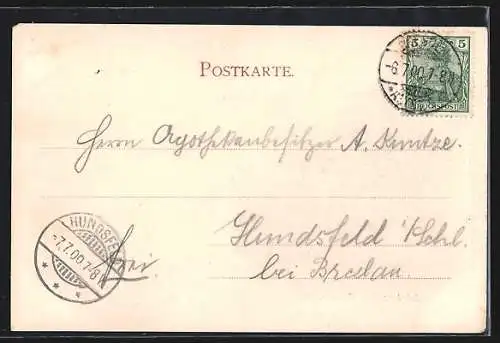 5 5
-6.7.00.7-8N
REICHSPOST
POSTKARTE.
Herrn Apothekenbesitzer A. Kuntze.
Hundsfeld i/Schl.
bei Breslau.
frei.
HUNDSFELD
-7.7.00.7-8V